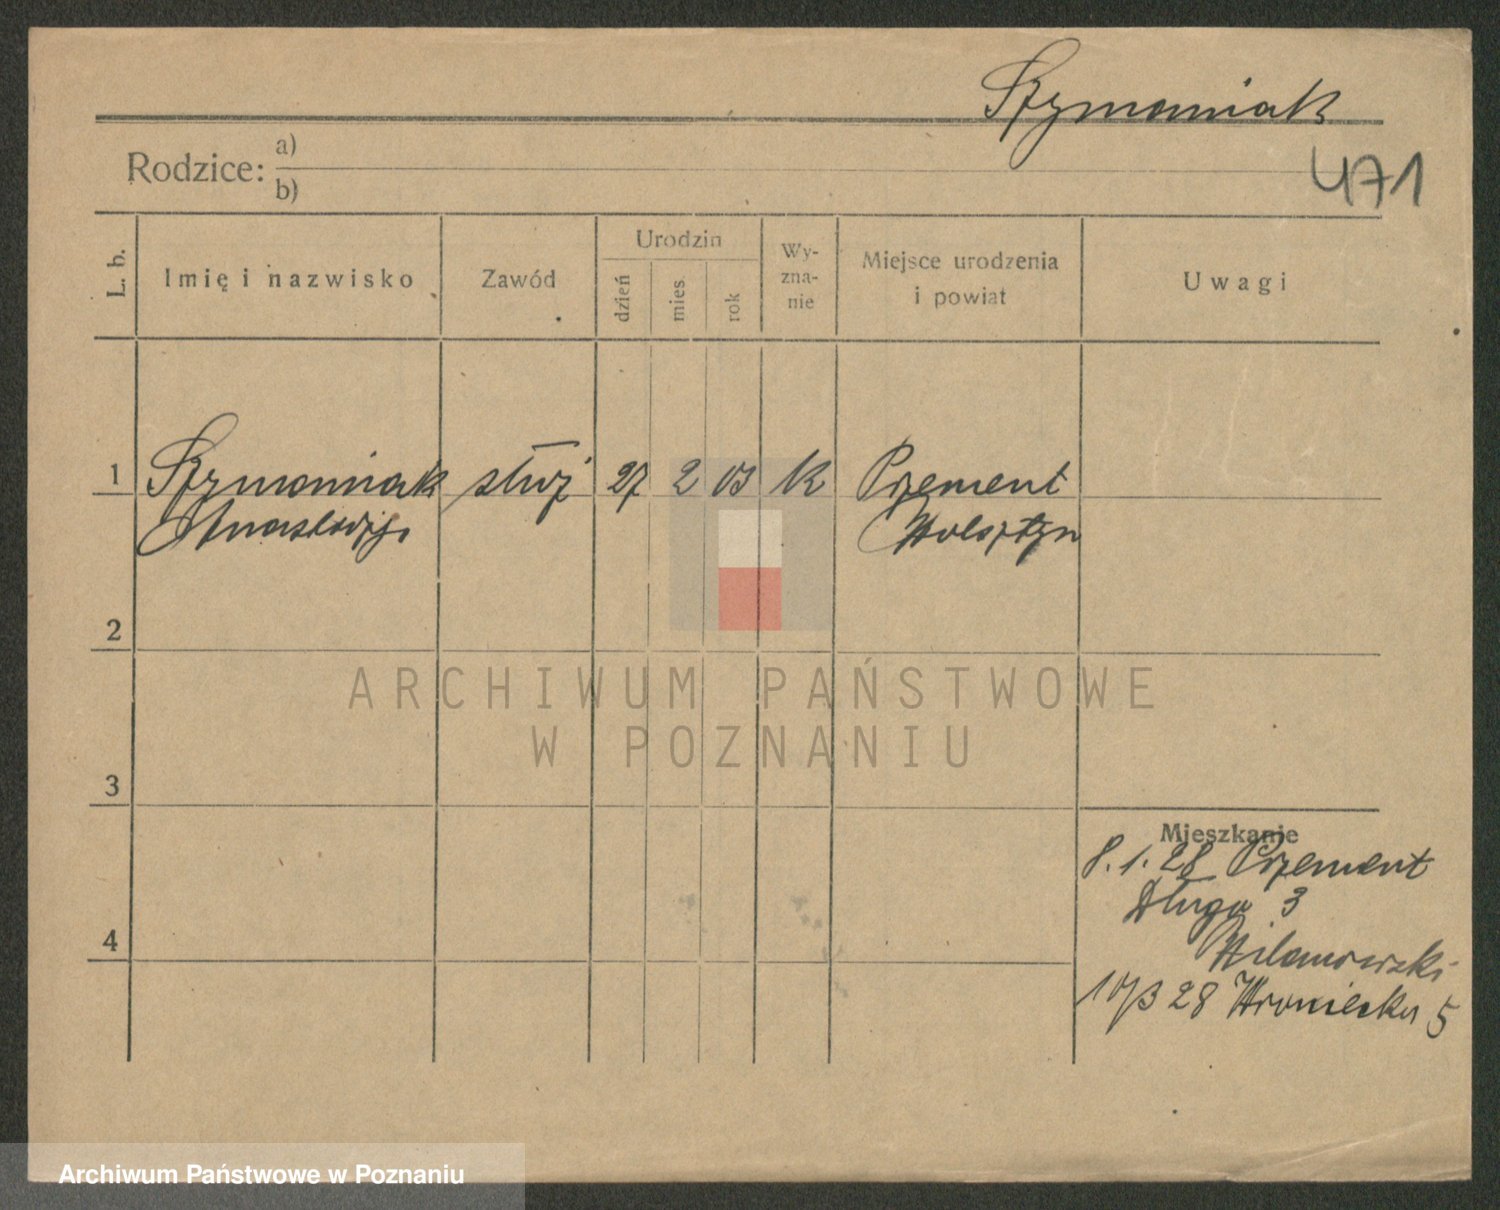 Szymaniak
Rodzice: a)
b)
471
L. b.
Imię i nazwisko
Zawód
Urodzin
dzień
mies.
rok
Wy-
zna-
nie
Miejsce urodzenia
i powiat
Uwagi
1 Szymaniak służ 27 2 03 k Przement
Wolsztyn
2
ARCHIWUM PAŃSTWOWE
W POZNANIU
3
Mieszkanie
8.1.28 Przement
Długa 3
4
10/3 28 Wroniecka 5
Archiwum Państwowe w Poznaniu